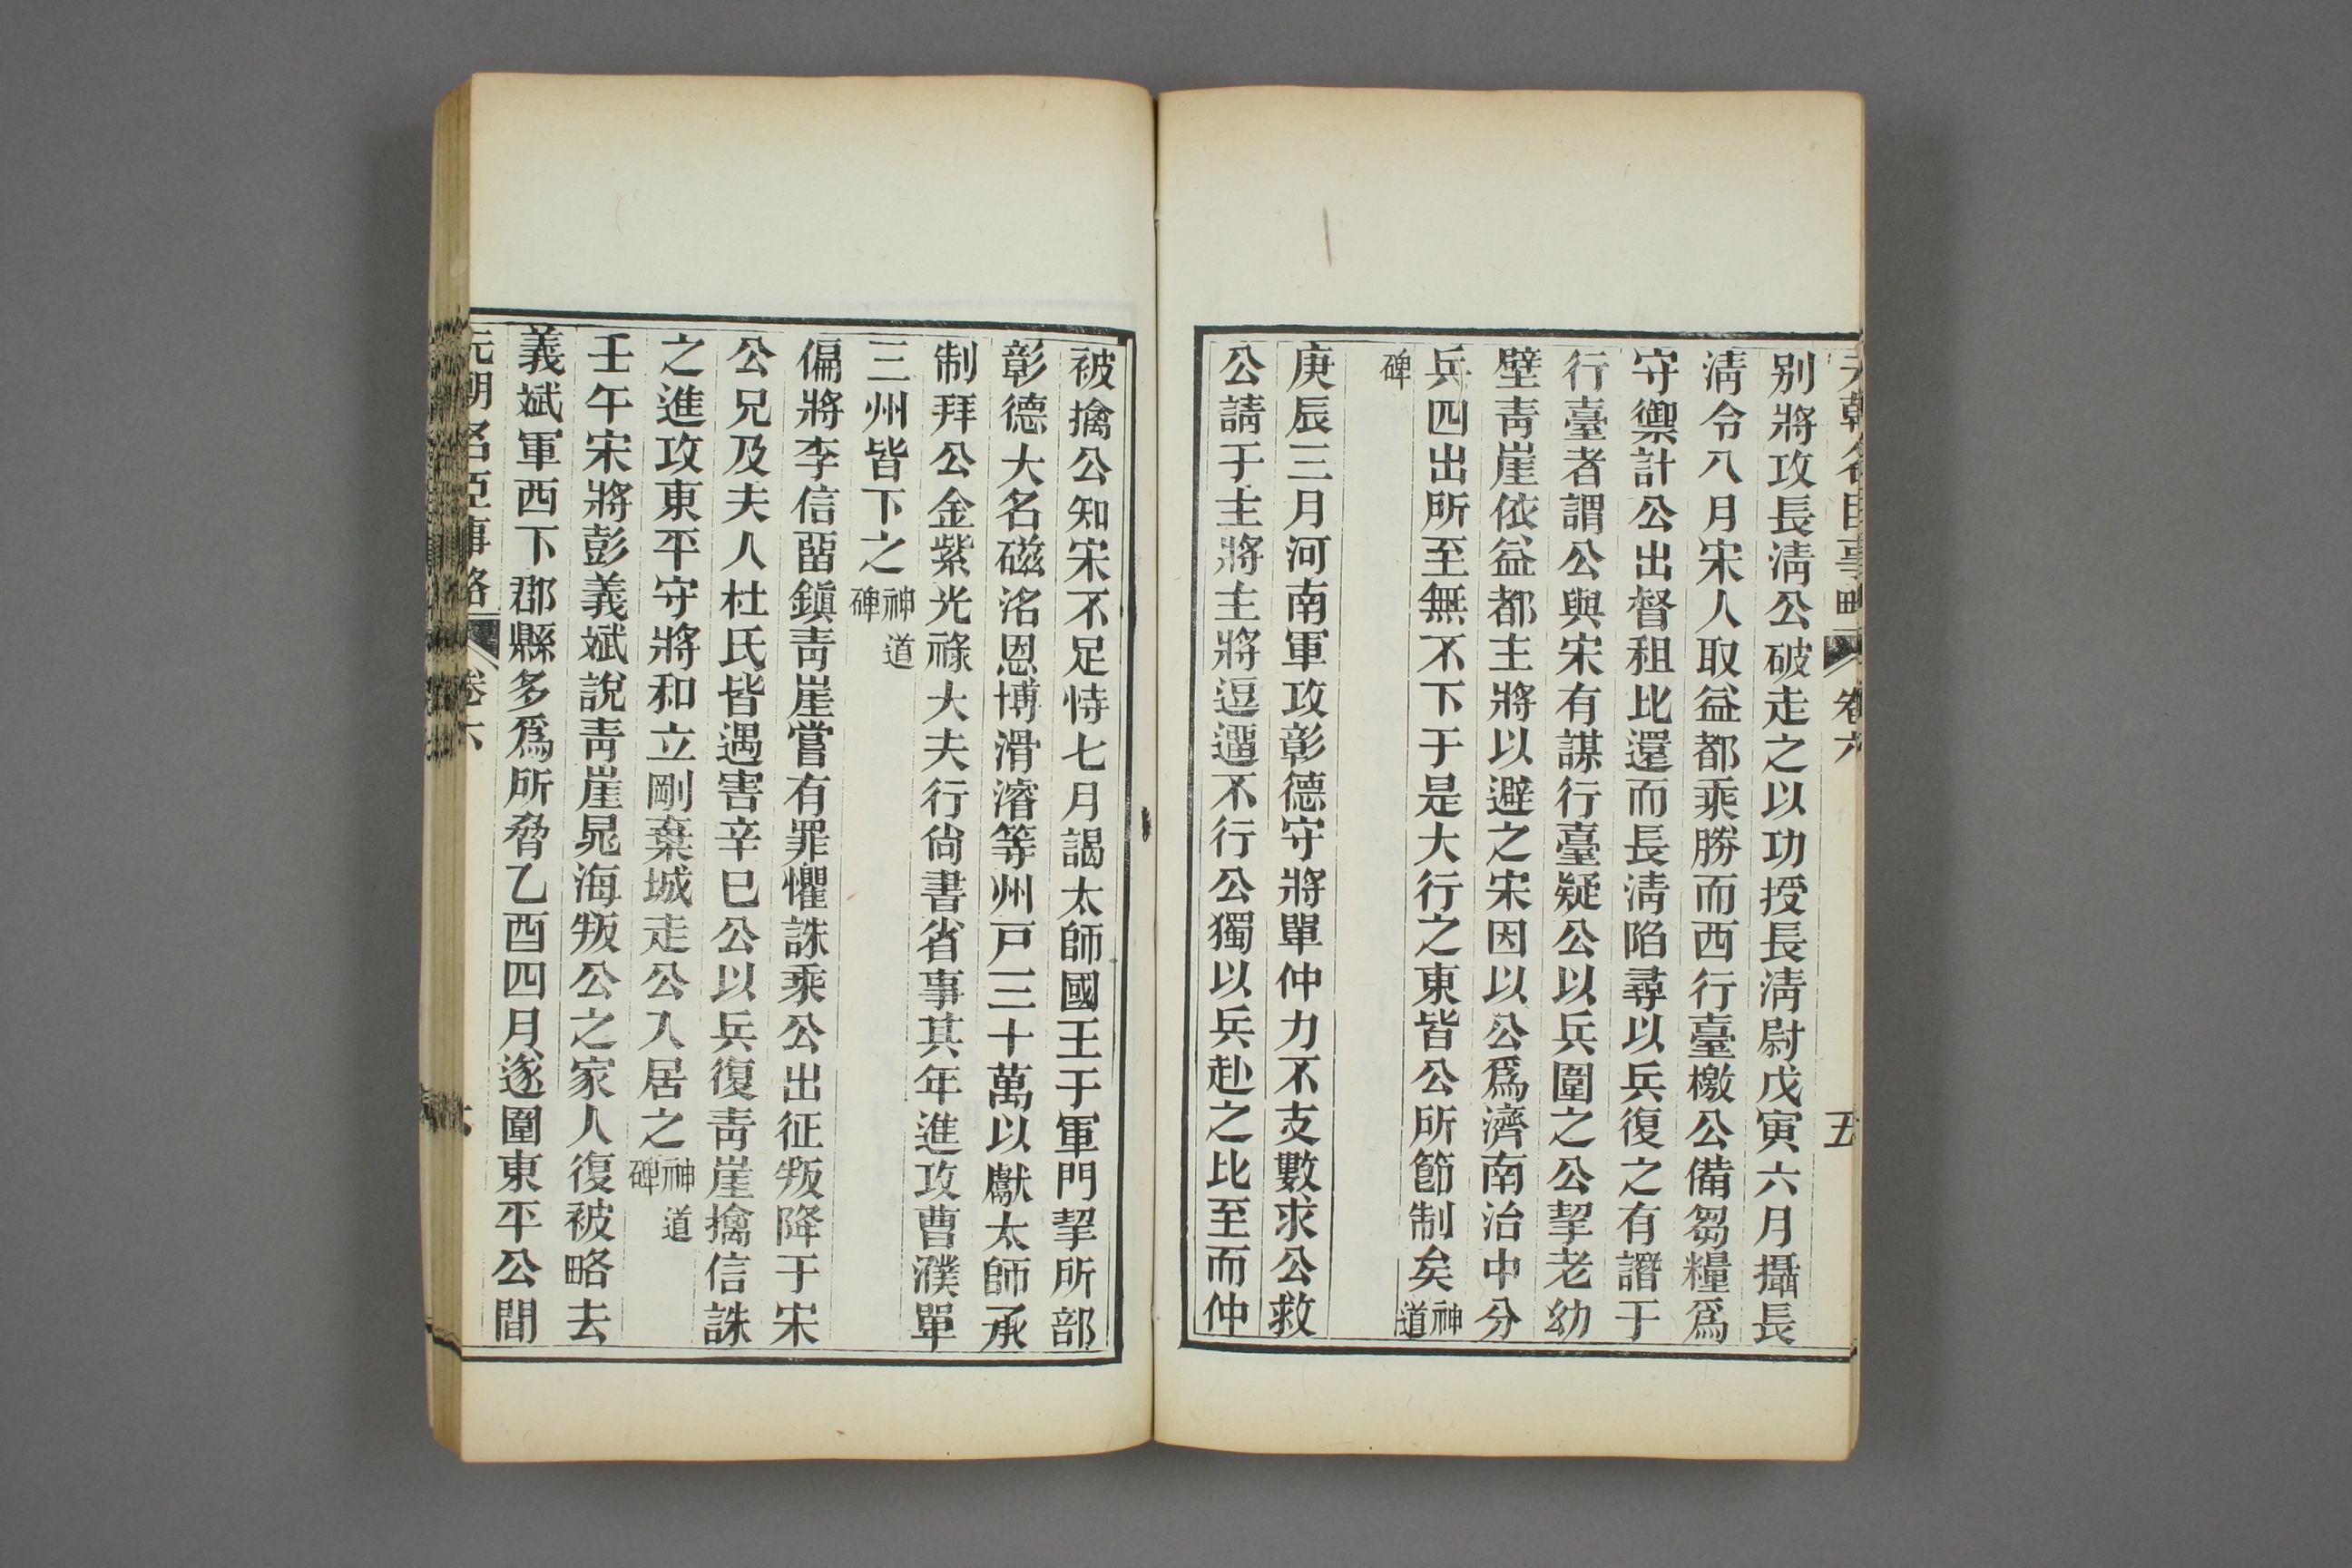 元朝名臣事略 卷六 五
別將攻長淸公破走之以功授長淸尉戊寅六月攝長
淸令八月宋人取益都乘勝而西行臺檄公備芻糧爲
守禦計公出督租比還而長淸陷尋以兵復之有譖于
行臺者謂公與宋有謀行臺疑公以兵圍之公挈老幼
壁靑崖依益都主將以避之宋因以公爲濟南治中分
兵四出所至無不下于是大行之東皆公所節制矣神道
碑
庚辰三月河南軍攻彰德守將單仲力不支數求公救
公請于主將主將逗遛不行公獨以兵赴之比至而仲
被擒公知宋不足恃七月謁太師國王于軍門挈所部
彰德大名磁洺恩博滑濬等州戸三十萬以獻太師承
制拜公金紫光祿大夫行尙書省事其年進攻曹濮單
三州皆下之神道碑
偏將李信畱鎭靑崖嘗有罪懼誅乘公出征叛降于宋
公兄及夫人杜氏皆遇害辛巳公以兵復靑崖擒信誅
之進攻東平守將和立剛棄城走公入居之神道碑
壬午宋將彭義斌說靑崖晁海叛公之家人復被略去
義斌軍西下郡縣多爲所脅乙酉四月遂圍東平公間
元朝名臣事略 卷六